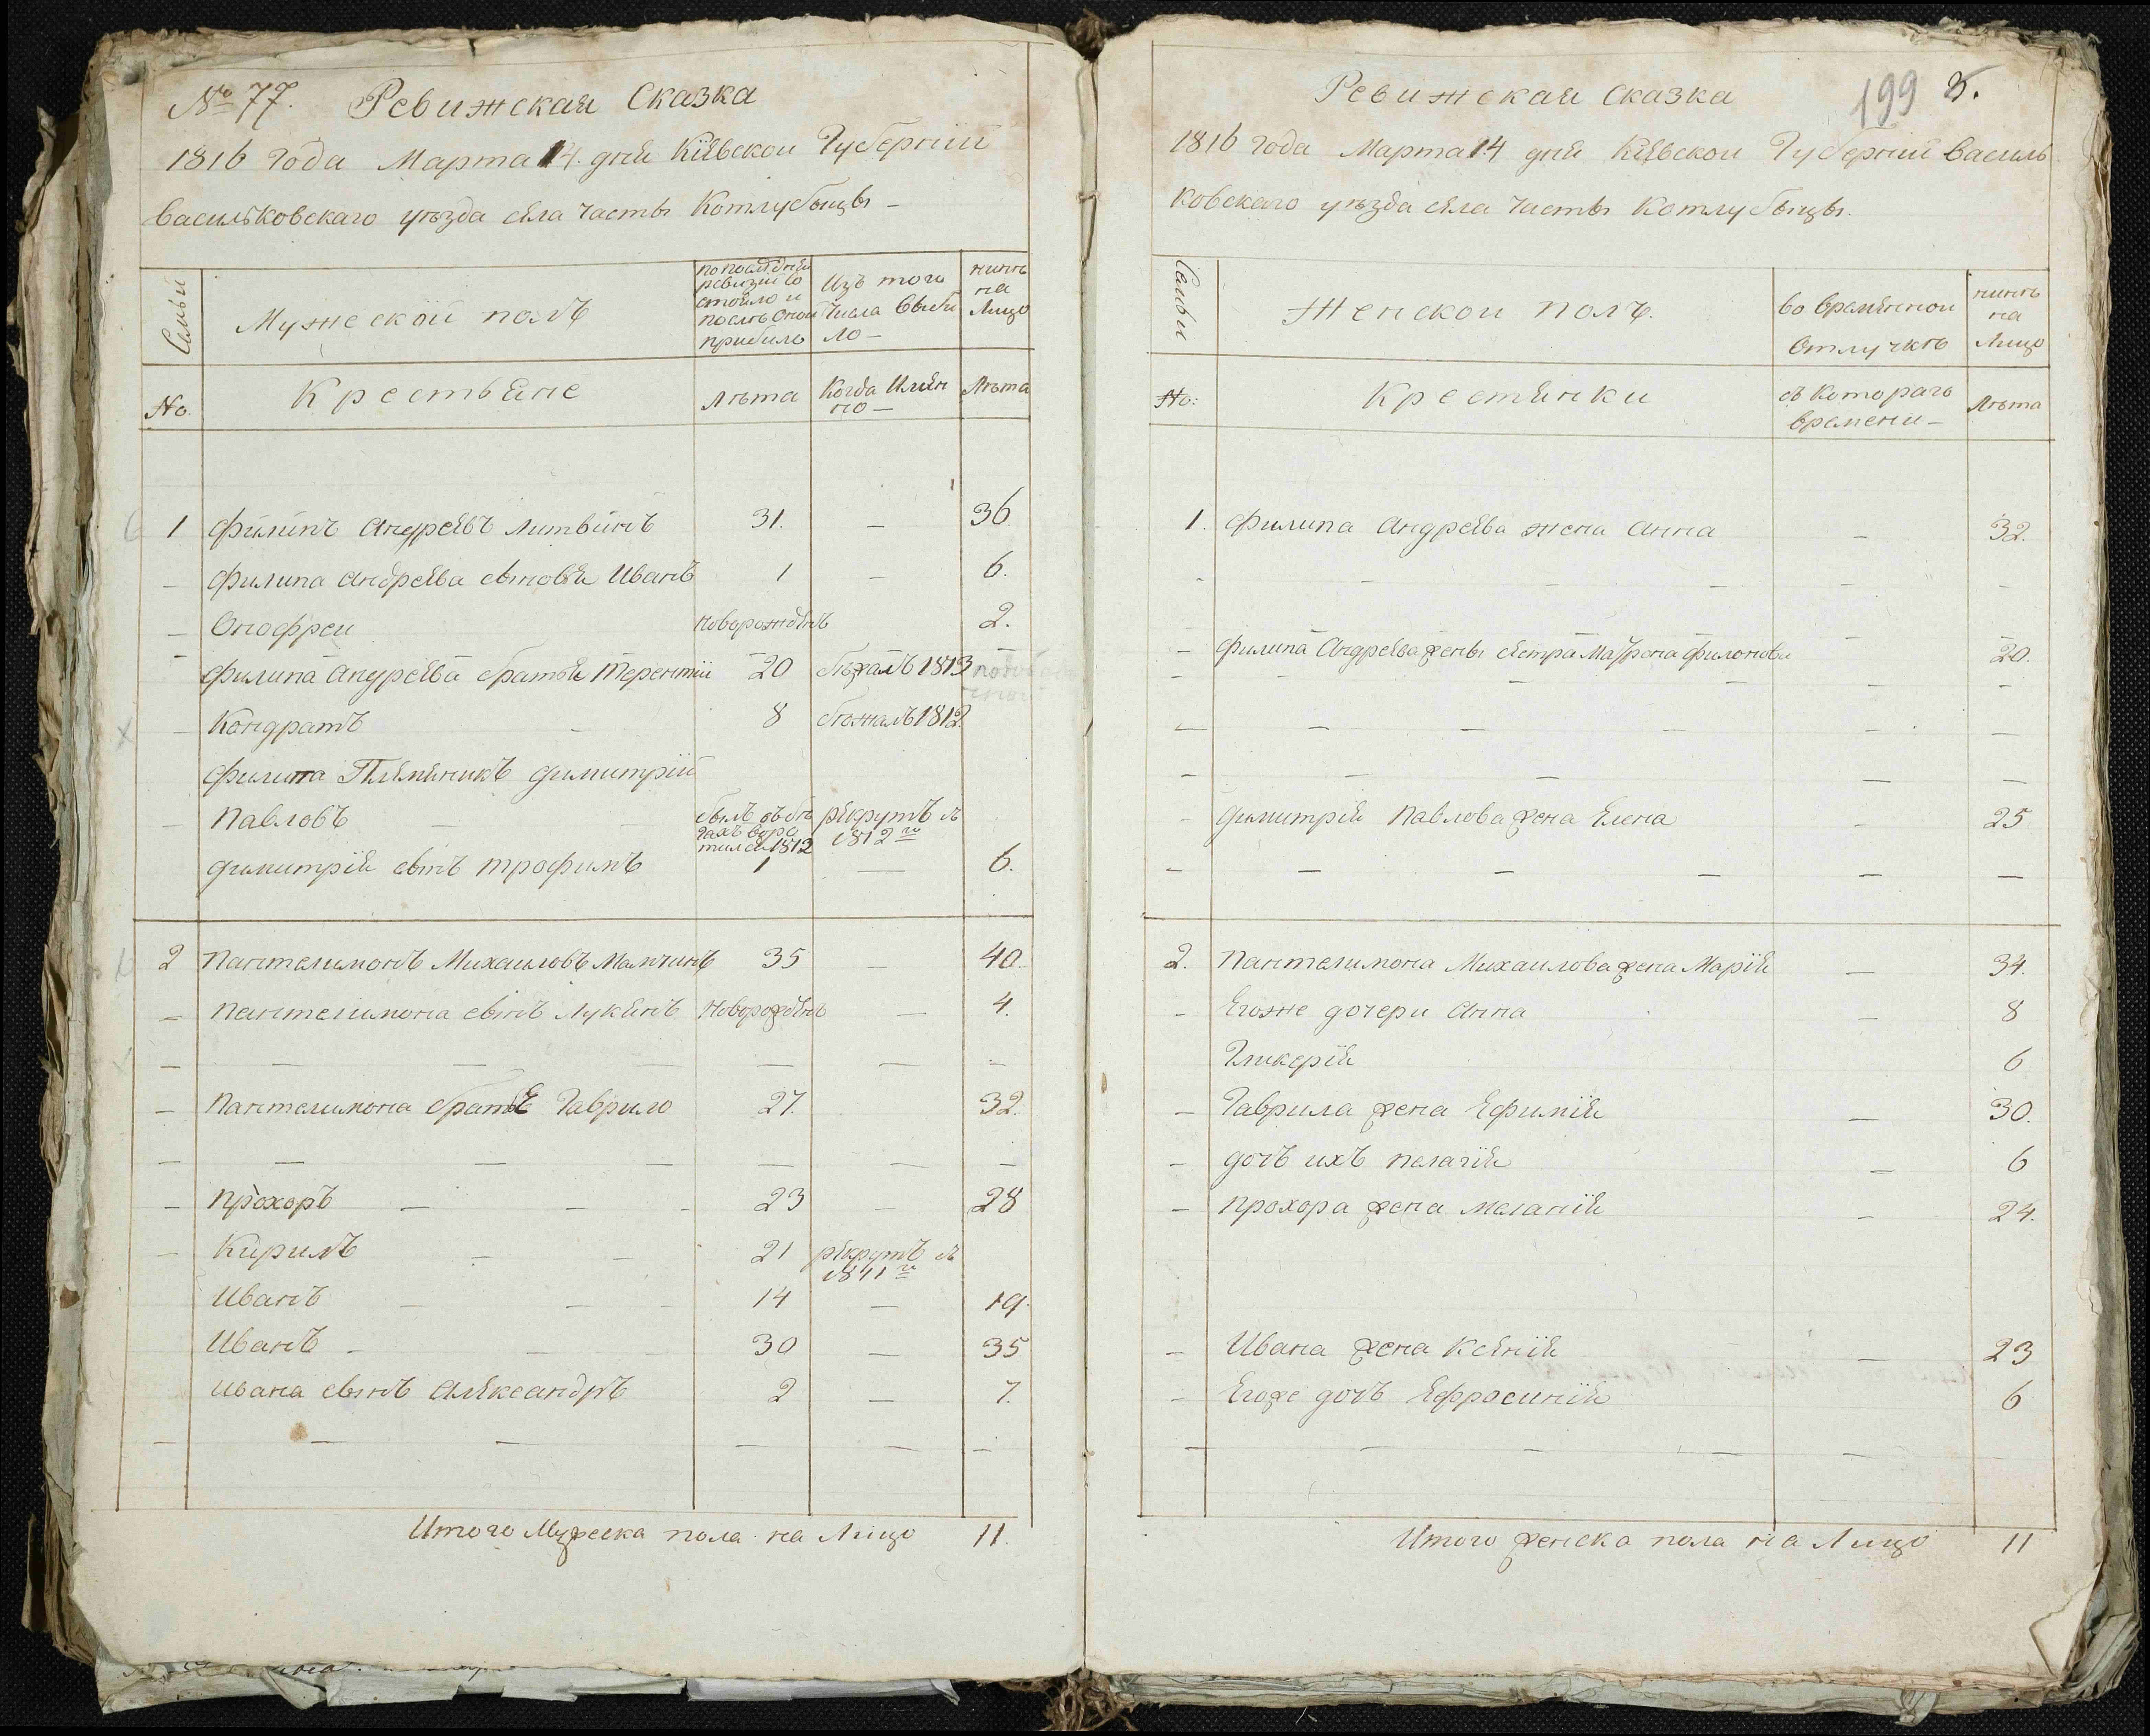 № 77. Ревижская Сказка
1816 года Марта 14. дня Кіевской Губерніи
Васильковскаго уѣзда села Части Котлубыцы –
Семьи
Мужескои полъ
по последней
ревизіи со
стояло и
послѣ оной
прибыло
Изъ того
Числа выбы
ло –
нинѣ
на
Лицо
No.
Крестьяне
Лѣта
Когда Имян
но –
Лѣта
1 Филипъ Андреевъ Литвинъ 31. – 36.
– Филипа Андреева сыновья Иванъ 1 – 6.
– Онофреи новорожденъ 2.
– Филипа Андреева братья Терентіи 20 бѣжалъ 1813
– Кондратъ 8 бѣжалъ 1812.
Филипа Племеникъ Димитрій
– Павловъ – былъ въ бѣ
гахъ воро
тился 1812
рекрутъ въ
1812 го
Димитрія сынъ Трофимъ 1 – 6.
2 Пантелимонъ Михаиловъ Мамчинъ 35 – 40.
– Пантелимона сынъ Лукянъ Новорожденъ – 4.
– – – – – – –
– Пантелимона братья Гаврило 27. 32.
– – – – – – –
– Прохоръ – – – 23 – 28
– Кирилъ – – 21 рекрутъ въ
1811 го
Иванъ – – – 14 – 19.
Иванъ – – – 30 – 35
Ивана сынъ Александръ 2 – 7.
– – – – – –
Итого Мужеска пола на Лицо 11.
Ревижская Сказка
199 5.
1816 года Марта 14 дня Кіевской Губерніи Василь
ковскаго уѣзда села Части Котлубыцы.
Семьи
Женскои Полъ.
во временнои
Отлучкѣ
нинѣ
на
Лицо
No:
Крестянки
съ Котораго
времени –
Лѣта
1. Филипа Андреева жена Анна – 32.
– – – – – –
– Филипа Андреева жены сестра Маѵрона Филонова – 20.
– – – – – –
– – – – – –
– – – – –
– Димитрія Павлова жена Елена – 25
– – – – – –
2. Пантелимона Михаилова жена Марія – 34.
– Егоже дочери Анна – 8
Гликерія 6
– Гаврила жена Ефимія – 30.
– дочъ ихъ Пелагія – 6
– Прохора жена Меланія – 24.
– Ивана жена Ксенія – 23
– Егоже дочъ Ефросинія 6
– – – – –
Итого женска пола на Лицо 11